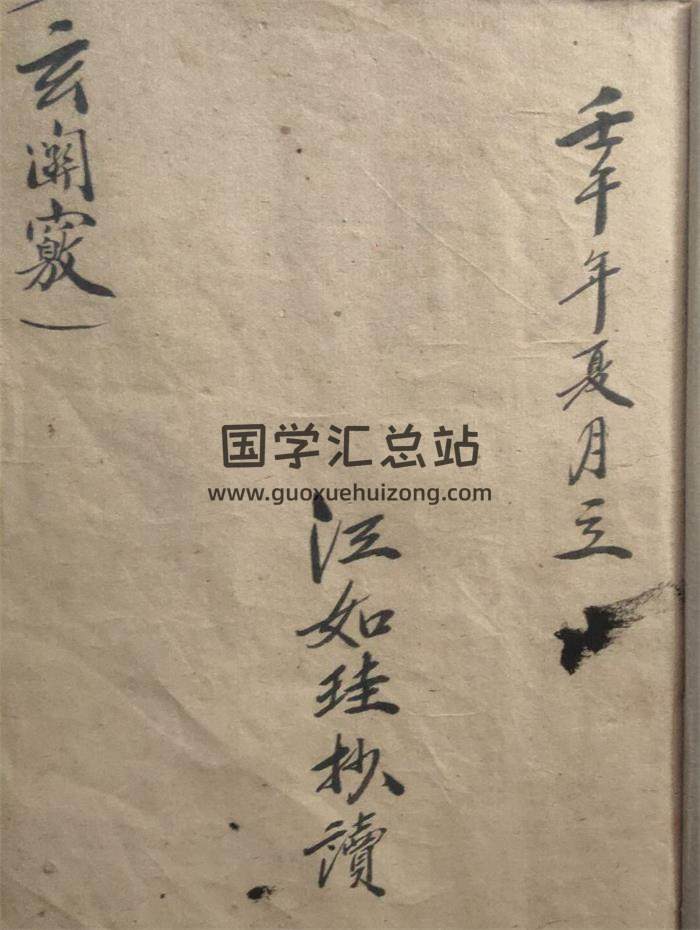 壬午年夏月立
江如珪抄讀
(玄関竅)
国学汇总站
www.guoxuehuizong.com